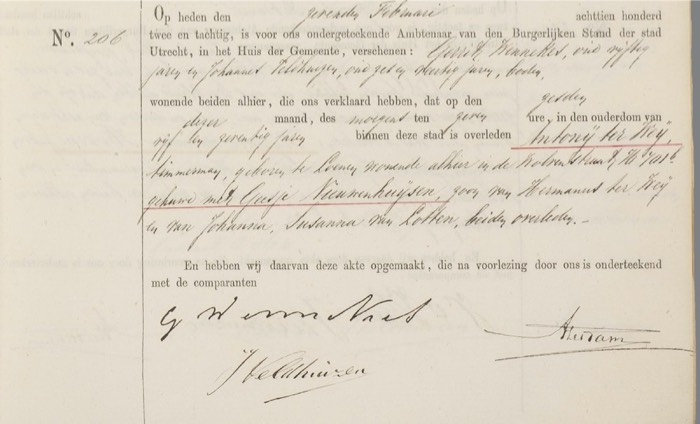 Op heden den zevenden Februari achttien honderd
N°. 206 twee en tachtig, is voor ons ondergeteekende Ambtenaar van den Burgerlijken Stand der stad
Utrecht, in het Huis der Gemeente, verschenen: Gerrit oud vijftig
jaren en Johannes Veldhuizen, oud zes en veertig jaren, boden,
wonende beiden alhier, die ons verklaard hebben, dat op den zesden
dezer maand, des morgens ten zeven ure, in den ouderdom van
vijf en zeventig jaren binnen deze stad is overleden Antonij ter Weij,
timmerman, geboren te Loenen wonende alhier in de
gehuwd met Geesje Nieuwenhuijsen, zoon van Hermanus ter Weij
en van Johanna, Susanna van Lotten, beiden overleden. –
En hebben wij daarvan deze akte opgemaakt, die na voorlezing door ons is onderteekend
met de comparanten
G
J Veldhuizen